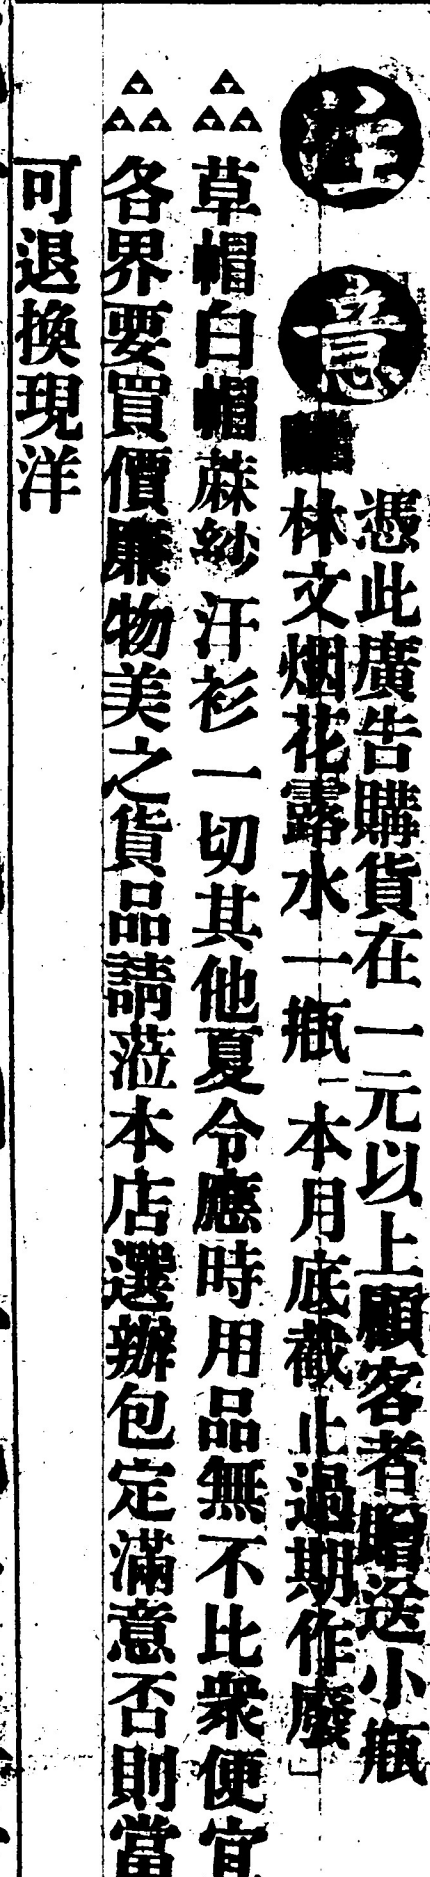 注意
憑此廣告購貨在一元以上顧客者贈送小瓶
林文烟花露水一瓶「本月底截止過期作廢」
草帽白帽蔴紗汗衫一切其他夏令應時用品無不比衆便宜
各界要買價廉物美之貨品請蒞本店選辦包定滿意否則當
可退換現洋